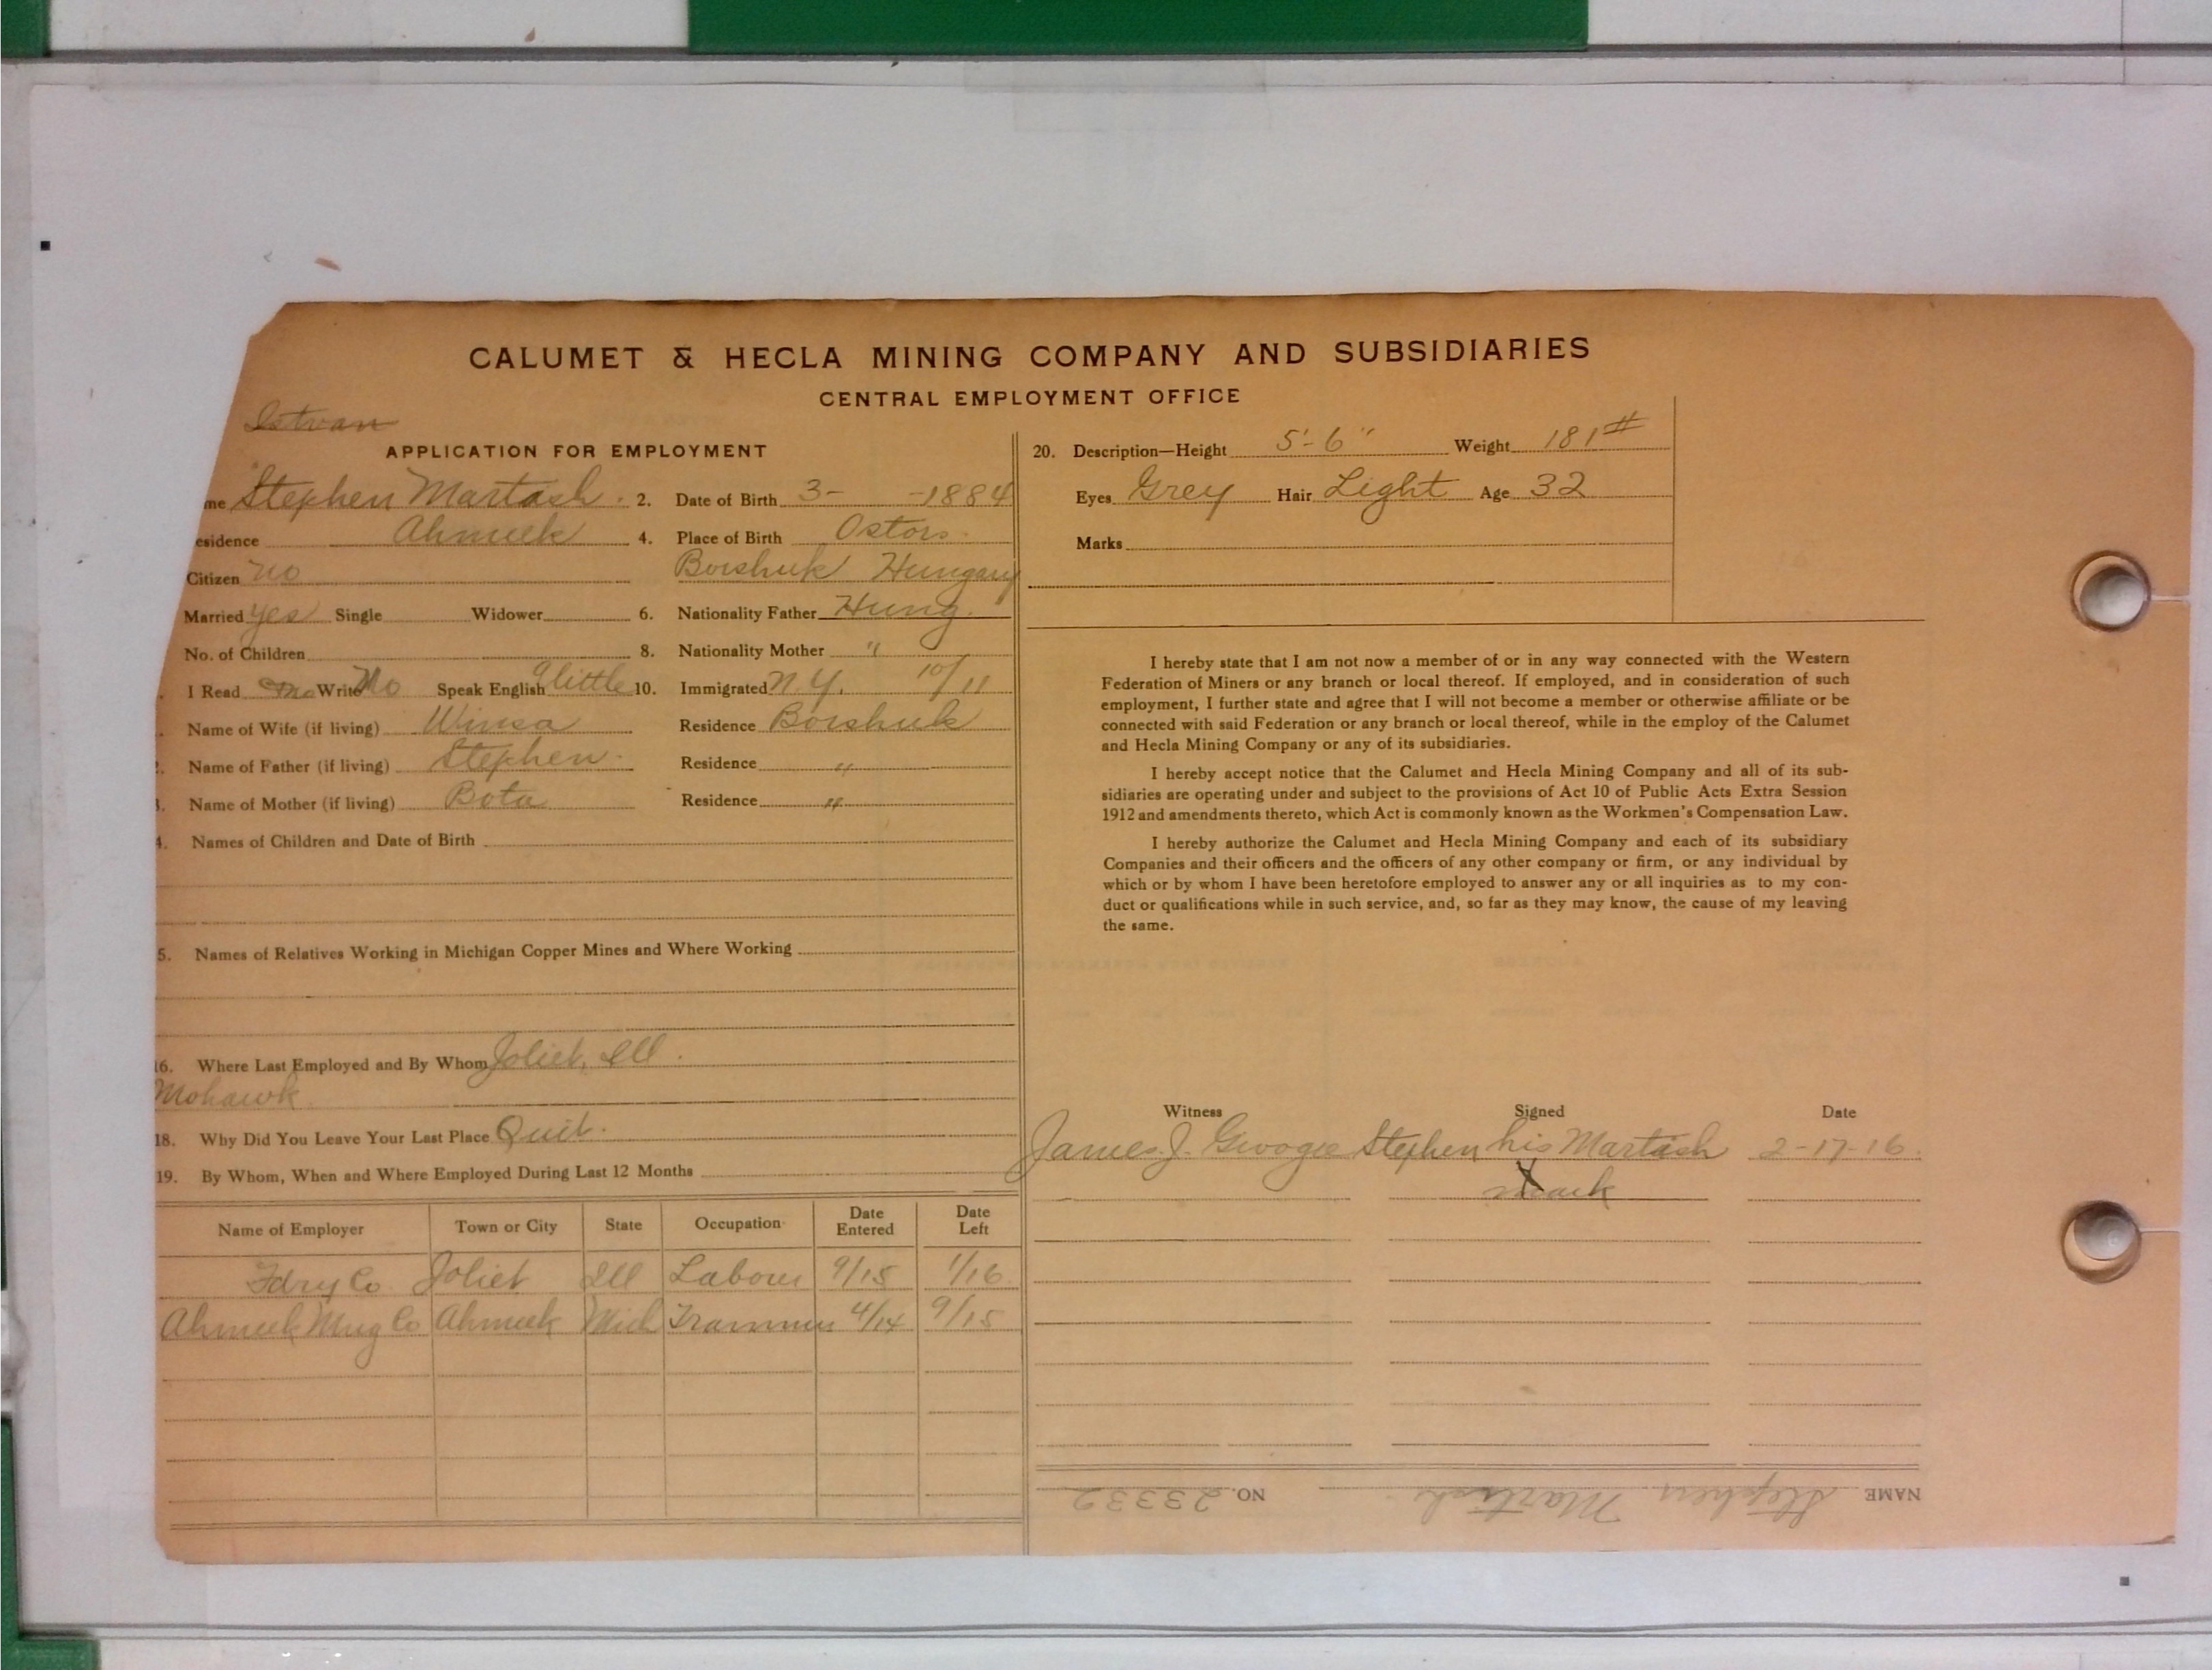 CALUMET & HECLA MINING COMPANY AND SUBSIDIARIES
CENTRAL EMPLOYMENT OFFICE
Istvan
APPLICATION FOR EMPLOYMENT
me Stephen Martash. 2. Date of Birth 3- -1884
esidence Ahmeek 4. Place of Birth Ostors.
Citizen no Borshuk Hungary
Married yes Single Widower 6. Nationality Father Hung.
No. of Children 8. Nationality Mother "
I Read no Write No Speak English A little 10. Immigrated N.Y. 10/11
Name of Wife (if living) Winsa Residence Borshuk
Name of Father (if living) Stephen. Residence "
3. Name of Mother (if living) Bota Residence "
4. Names of Children and Date of Birth
5. Names of Relatives Working in Michigan Copper Mines and Where Working
16. Where Last Employed and By Whom Joliet, Ill.
Mohawk
18. Why Did You Leave Your Last Place Quit.
19. By Whom, When and Where Employed During Last 12 Months
Name of Employer Town or City State Occupation Date Entered Date Left
Fdry Co. Joliet Ill Labour 9/15 1/16
Ahmeek Mng Co Ahmeek Mich Trammer 4/14 9/15
20. Description—Height 5'-6" Weight 181#
Eyes Grey Hair Light Age 32
Marks
I hereby state that I am not now a member of or in any way connected with the Western
Federation of Miners or any branch or local thereof. If employed, and in consideration of such
employment, I further state and agree that I will not become a member or otherwise affiliate or be
connected with said Federation or any branch or local thereof, while in the employ of the Calumet
and Hecla Mining Company or any of its subsidiaries.
I hereby accept notice that the Calumet and Hecla Mining Company and all of its sub-
sidiaries are operating under and subject to the provisions of Act 10 of Public Acts Extra Session
1912 and amendments thereto, which Act is commonly known as the Workmen's Compensation Law.
I hereby authorize the Calumet and Hecla Mining Company and each of its subsidiary
Companies and their officers and the officers of any other company or firm, or any individual by
which or by whom I have been heretofore employed to answer any or all inquiries as to my con-
duct or qualifications while in such service, and, so far as they may know, the cause of my leaving
the same.
Witness Signed Date
James J. Stephen his Martash 2-17-16.
X
mark
NAME Stephen Martash. NO. 23332